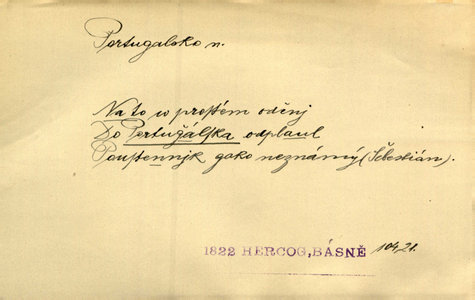 Portugalsko n.
Na to w prostém oděnj
Do Portugálska odplaul
Poustennjk gako neznámý (Šebestián).
1822 HERCOG, BÁSNĚ 104, 21.